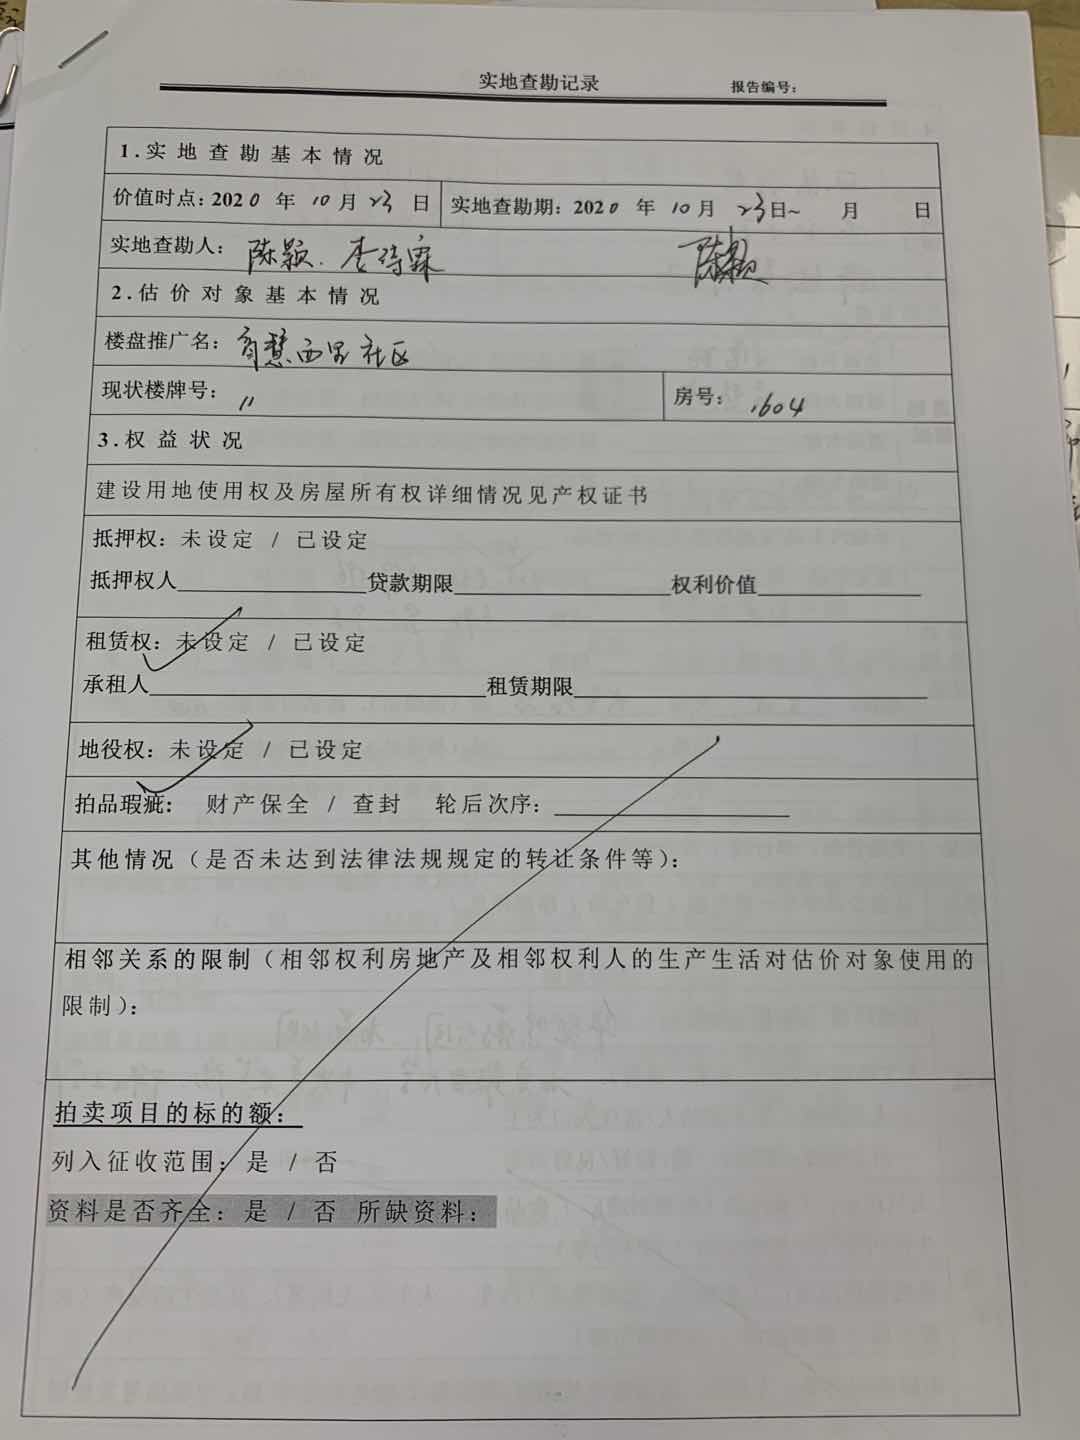 实地查勘记录 报告编号：
1.实地查勘基本情况
价值时点：2020 年 10 月 23 日 实地查勘期：2020 年 10 月 23日~ 月 日
实地查勘人：陈颖、李 陈颖
2.估价对象基本情况
楼盘推广名：育慧西里社区
现状楼牌号：11 房号：1604
3.权益状况
建设用地使用权及房屋所有权详细情况见产权证书
抵押权：未设定 / 已设定
抵押权人 贷款期限 权利价值
租赁权：未设定 / 已设定
承租人 租赁期限
地役权：未设定 / 已设定
拍品瑕疵： 财产保全 / 查封 轮后次序：
其他情况（是否未达到法律法规规定的转让条件等）：
相邻关系的限制（相邻权利房地产及相邻权利人的生产生活对估价对象使用的
限制）：
拍卖项目的标的额：
列入征收范围：是 / 否
资料是否齐全：是 / 否 所缺资料：